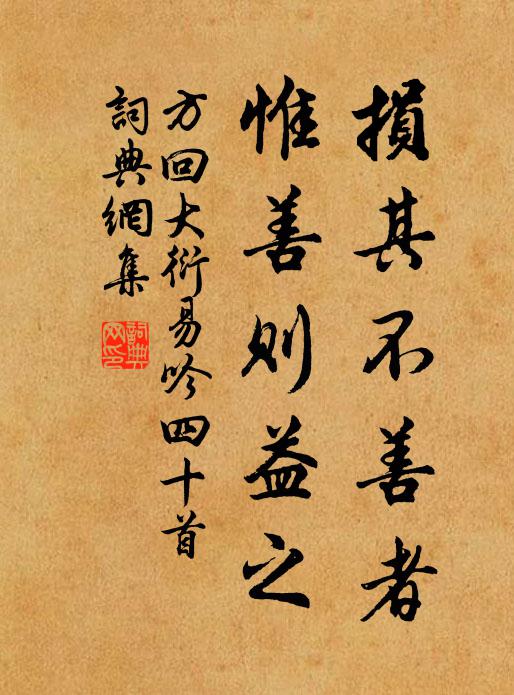 損其不善者
惟善則益之
方回大衍易吟四十首
詞典網集
詞典网印